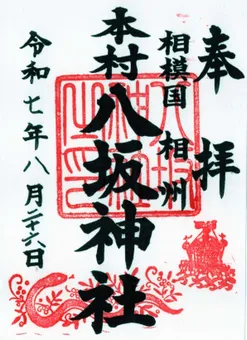 奉拝
相模国 相州
本村八坂神社
令和七年八月二十六日